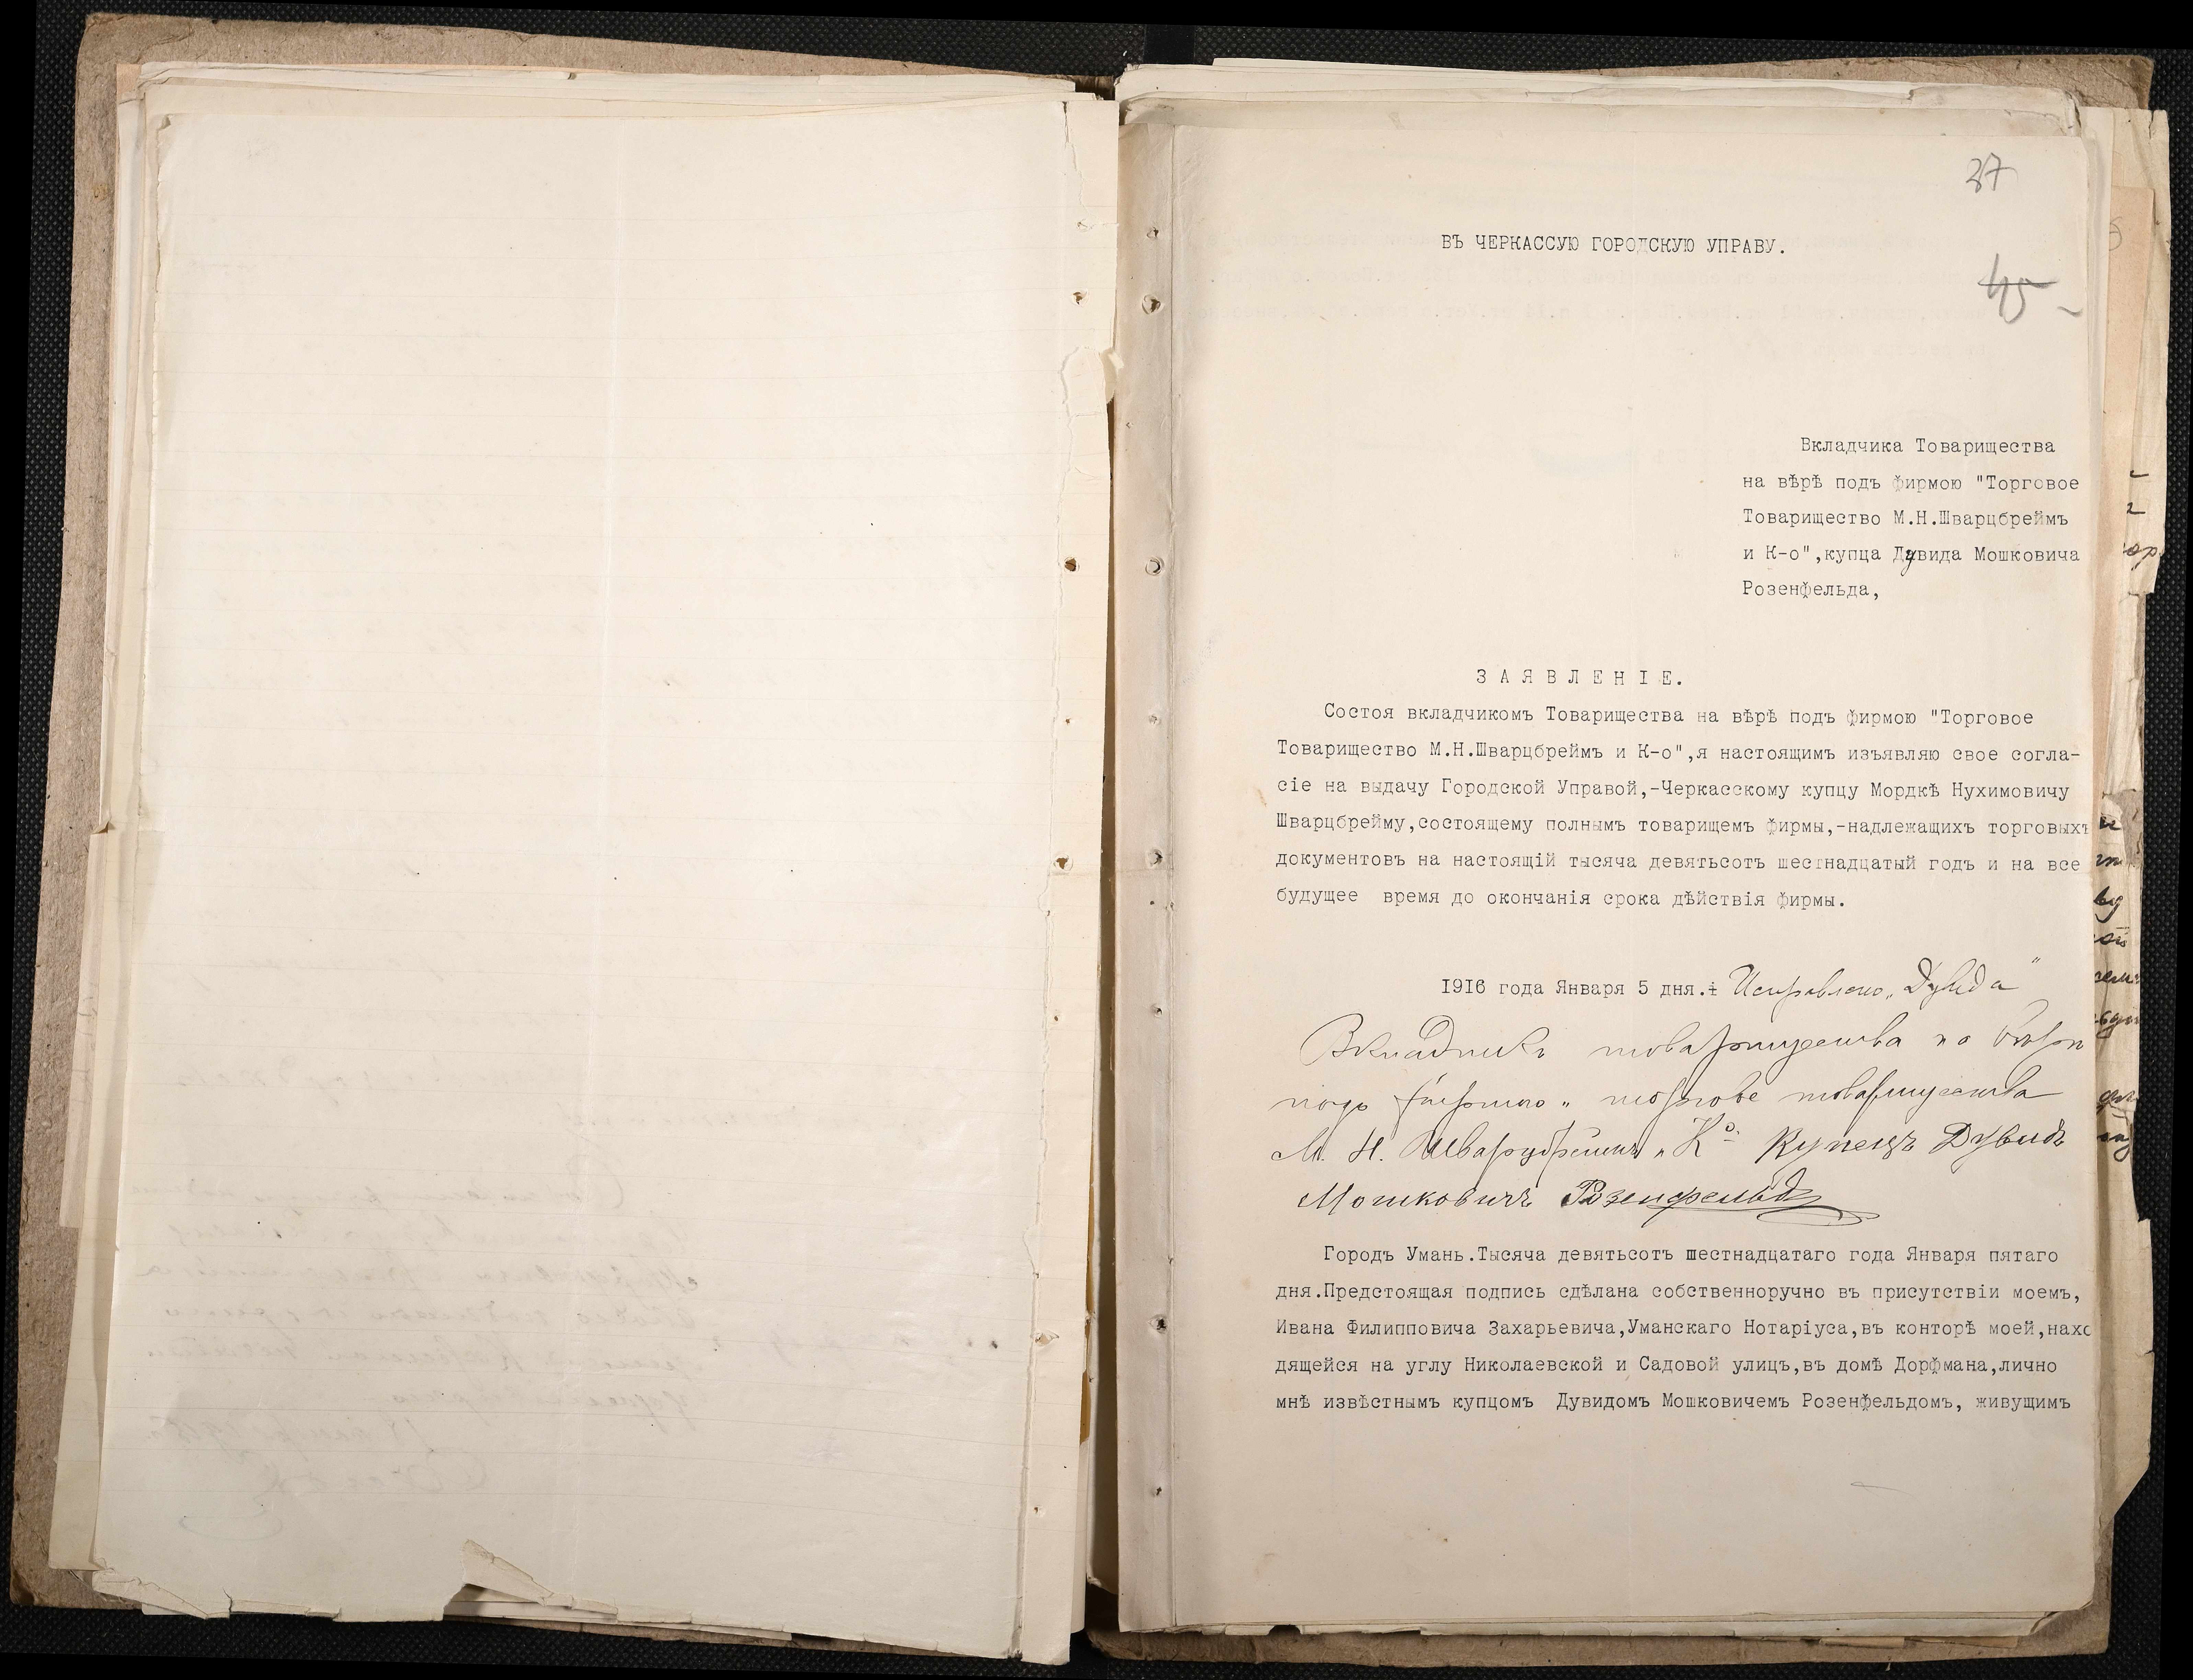 37
45
ВЪ ЧЕРКАССУЮ ГОРОДСКУЮ УПРАВУ.
Вкладчика Товарищества
на вѣрѣ подъ фирмою "Торговое
Товарищество М.Н.Шварцбреймъ
и К-о",купца Дувида Мошковича
Розенфельда,
З А Я В Л Е Н I Е.
Состоя вкладчикомъ Товарищества на вѣрѣ подъ фирмою "Торговое
Товарищество М.Н.Шварцбреймъ и К-о",я настоящимъ изъявляю свое согла-
сіе на выдачу Городской Управой,-Черкасскому купцу Мордкѣ Нухимовичу
Шварцбрейму,состоящему полнымъ товарищемъ фирмы,-надлежащихъ торговыхъ
документовъ на настоящій тысяча девятьсотъ шестнадцатый годъ и на все
будущее время до окончанія срока дѣйствія фирмы.
1916 года Января 5 дня. Исправлено „Дувида"
Вкладчикъ товарищества на вѣрѣ
подъ фирмою „торгове товарищества
М. Н. Шварцбреймъ и Ко Купецъ Дувидъ
Мошковичъ Розенфельдъ
Городъ Умань.Тысяча девятьсотъ шестнадцатаго года Января пятаго
дня.Предстоящая подпись сдѣлана собственноручно въ присутствіи моемъ,
Ивана Филипповича Захарьевича,Уманскаго Нотаріуса,въ конторѣ моей,нахо
дящейся на углу Николаевской и Садовой улицъ,въ домѣ Дорфмана,лично
мнѣ извѣстнымъ купцомъ Дувидомъ Мошковичемъ Розенфельдомъ, живущимъ